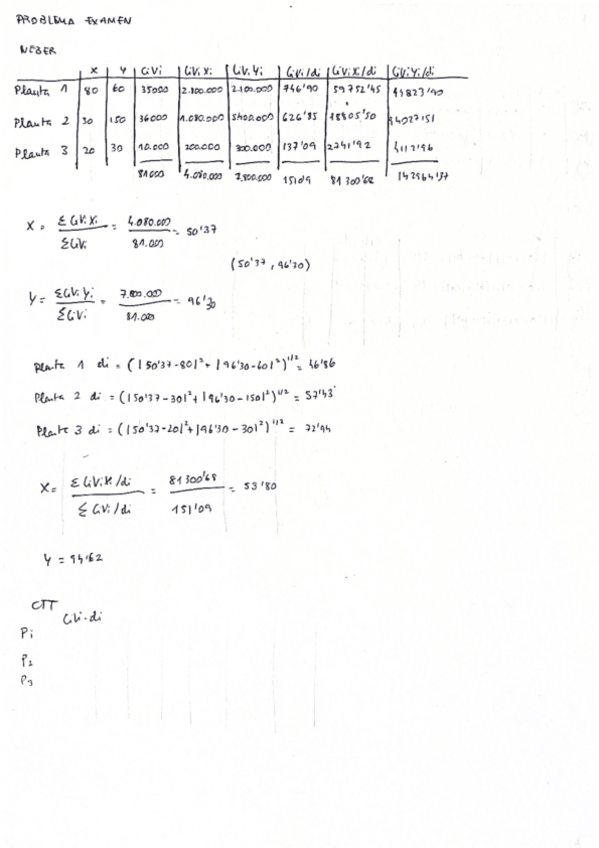 PROBLEMA EXAMEN
WEBER
X Y CiVi CiVi Xi CiVi Yi CiVi/di CiViXi/di CiViYi/di
Planta 1 80 60 35000 2.800.000 2.100.000 746'90 59752'45 44823'90
Planta 2 30 150 36000 1.080.000 5400.000 626'85 18805'50 94027'51
Planta 3 20 30 10.000 200.000 300.000 137'09 2741'92 4112'96
81000 4.080.000 7.800.000 1511'09 81300'68 142964'37
X = ΣCiViXi / ΣCiVi = 4.080.000 / 81.000 = 50'37
(50'37, 96'30)
Y = ΣCiViYi / ΣCiVi = 7.800.000 / 81.000 = 96'30
Planta 1 di = (|50'37-80|² + |96'30-60|²)^1/2 = 46'86
Planta 2 di = (|50'37-30|² + |96'30-150|²)^1/2 = 57'43
Planta 3 di = (|50'37-20|² + |96'30-30|²)^1/2 = 72'94
X = ΣCiViX/di / ΣCiVi/di = 81300'68 / 151'09 = 53'80
Y = 94'62
CTT
CiVi·di
Pi
P2
P3